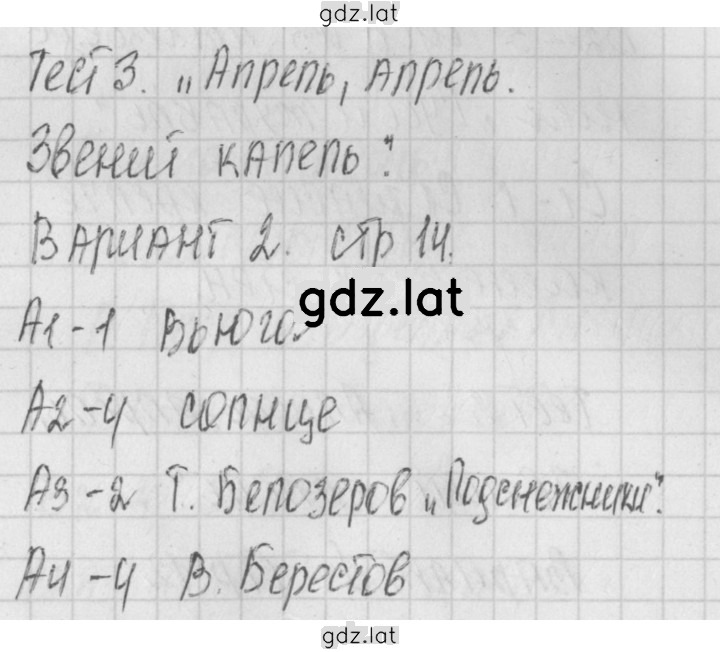 gdz.lat
Тест 3. „Апрель, апрель.
Звенит капель".
Вариант 2. стр 14.
gdz.lat
А1-1 Вьюга
А2-4 солнце
А3-2 Т. Белозеров „Подснежники".
А4-4 В. Берестов
gdz.lat